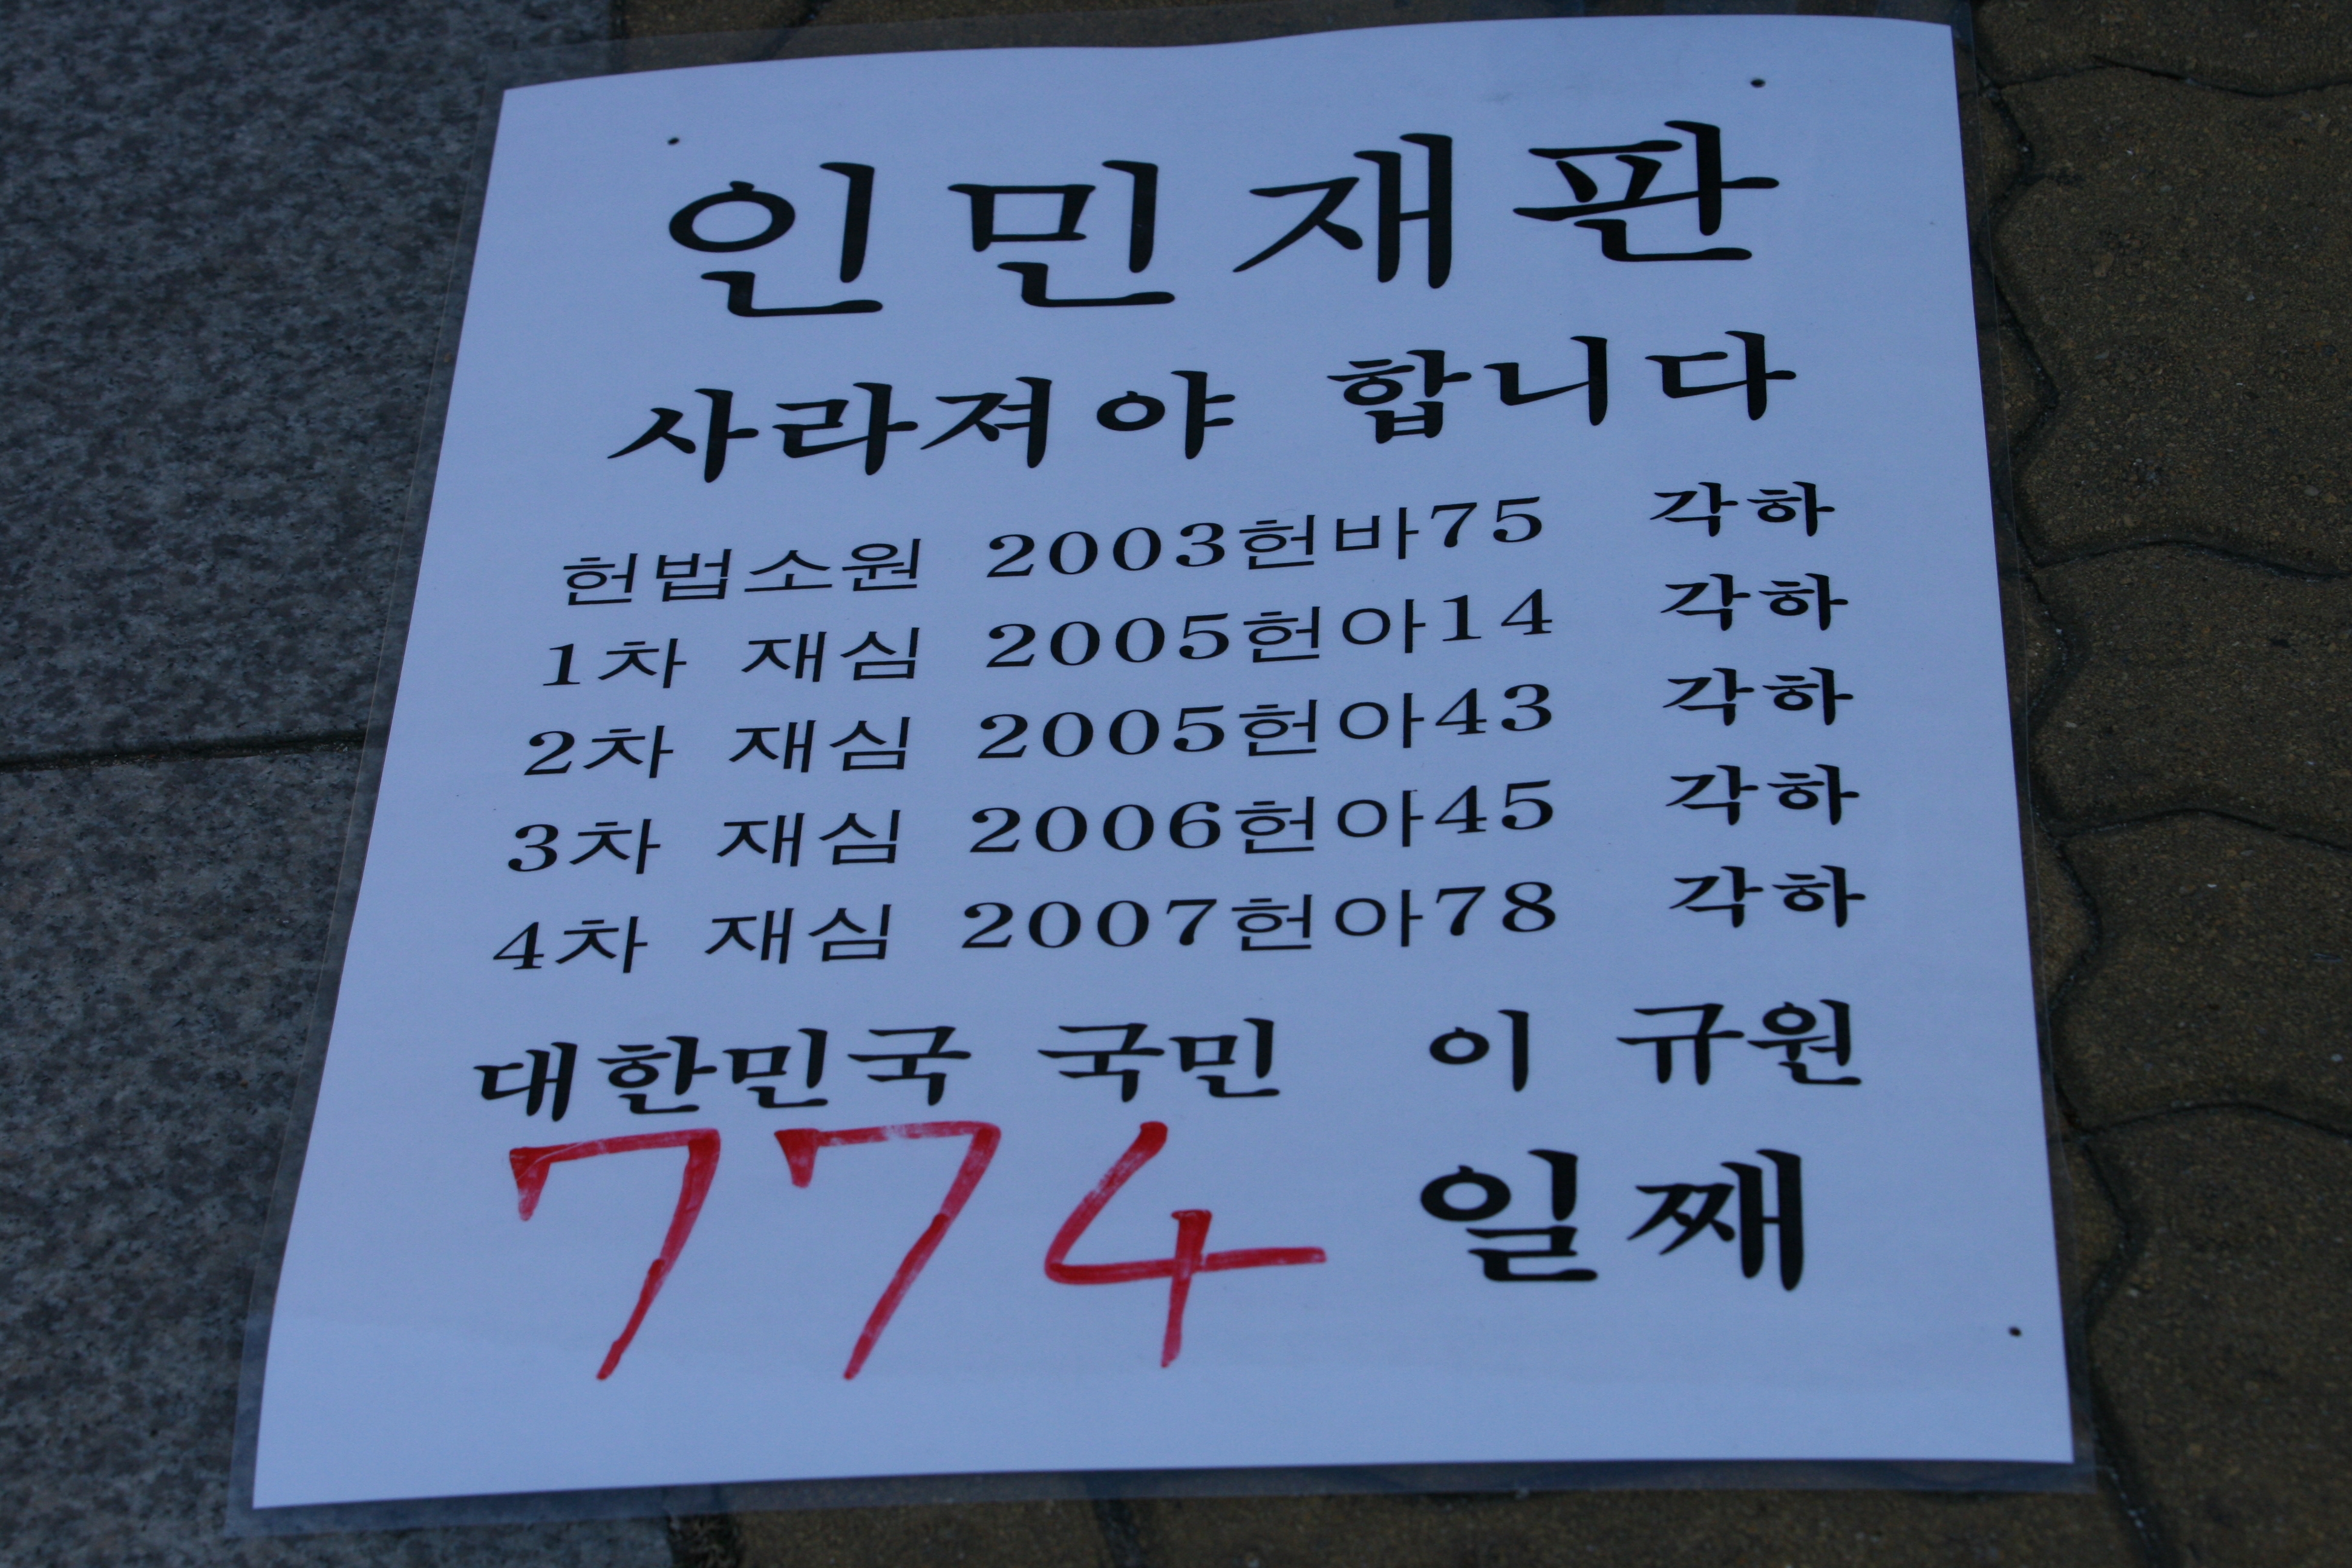 인민재판
사라져야 합니다
헌법소원 2003헌바75 각하
1차 재심 2005헌아14 각하
2차 재심 2005헌아43 각하
3차 재심 2006헌아45 각하
4차 재심 2007헌아78 각하
대한민국 국민 이 규원
774 일째